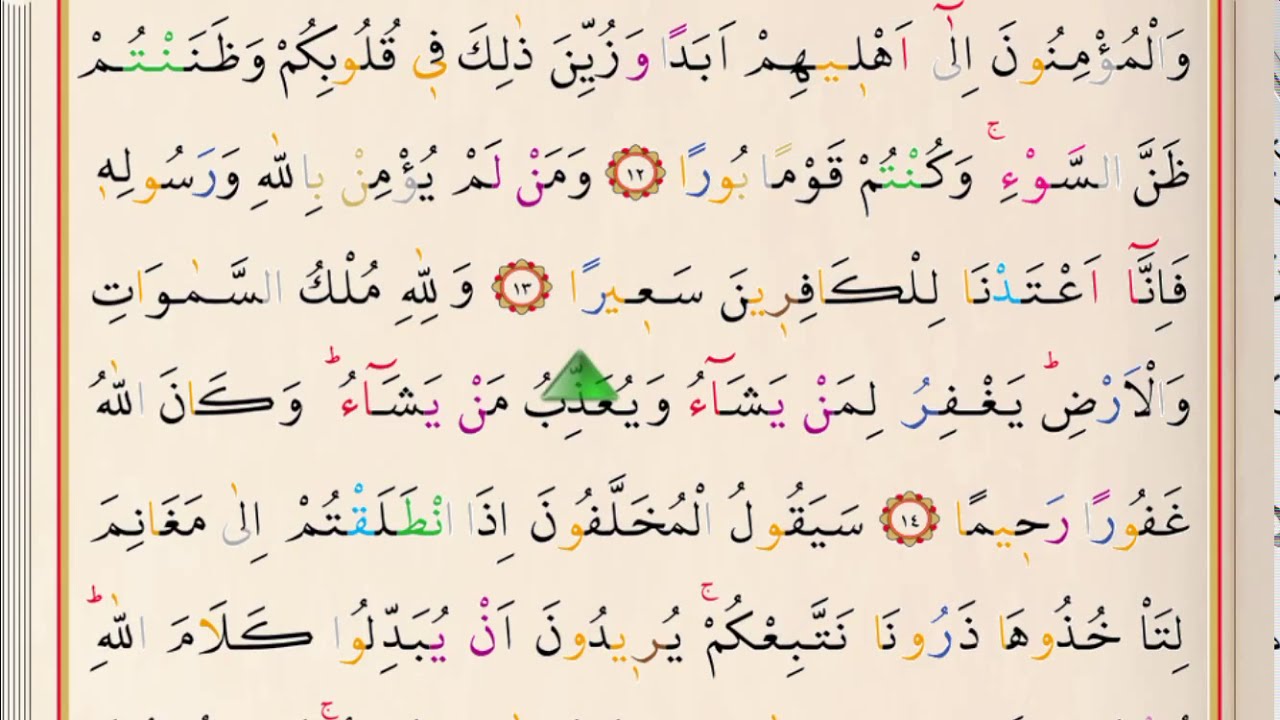 وَالْمُؤْمِنُونَ اِلٰٓى اَهْلٖيهِمْ اَبَدًا وَزُيِّنَ ذٰلِكَ فٖي قُلُوبِكُمْ وَظَنَنْتُمْ
ظَنَّ السَّوْءِۚ وَكُنْتُمْ قَوْمًا بُورًا ﴿١٢﴾ وَمَنْ لَمْ يُؤْمِنْ بِاللّٰهِ وَرَسُولِهٖ
فَاِنَّٓا اَعْتَدْنَا لِلْكَافِرٖينَ سَعٖيرًا ﴿١٣﴾ وَلِلّٰهِ مُلْكُ السَّمٰوَاتِ
وَالْاَرْضِۜ يَغْفِرُ لِمَنْ يَشَٓاءُ وَيُعَذِّبُ مَنْ يَشَٓاءُۜ وَكَانَ اللّٰهُ
غَفُورًا رَحٖيمًا ﴿١٤﴾ سَيَقُولُ الْمُخَلَّفُونَ اِذَا انْطَلَقْتُمْ اِلٰى مَغَانِمَ
لِتَأْخُذُوهَا ذَرُونَا نَتَّبِعْكُمْۚ يُرٖيدُونَ اَنْ يُبَدِّلُوا كَلَامَ اللّٰهِۜ